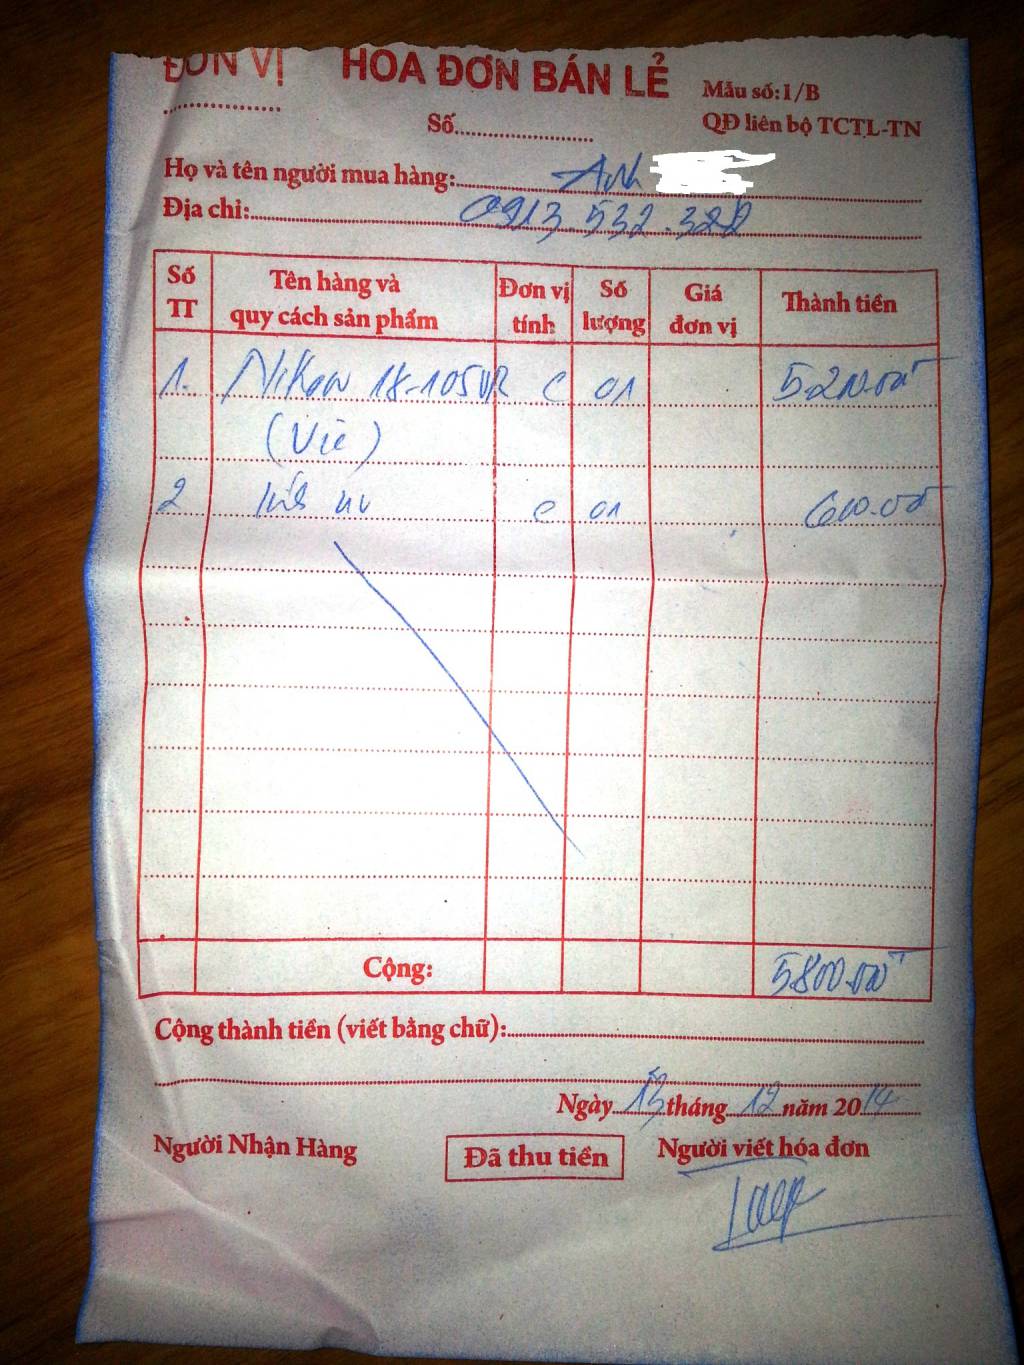 ĐƠN VỊ HÓA ĐƠN BÁN LẺ Mẫu số:1/B
Số QĐ liên bộ TCTL-TN
Họ và tên người mua hàng: Anh
Địa chỉ: 0913.532.322
Số TT Tên hàng và quy cách sản phẩm Đơn vị tính Số lượng Giá đơn vị Thành tiền
1. Nikon 18-105VR C 01
2 uv C 01 600.00
Cộng: 5800.00
Cộng thành tiền (viết bằng chữ):
Ngày 13 tháng 12 năm 2014
Người Nhận Hàng Đã thu tiền Người viết hóa đơn